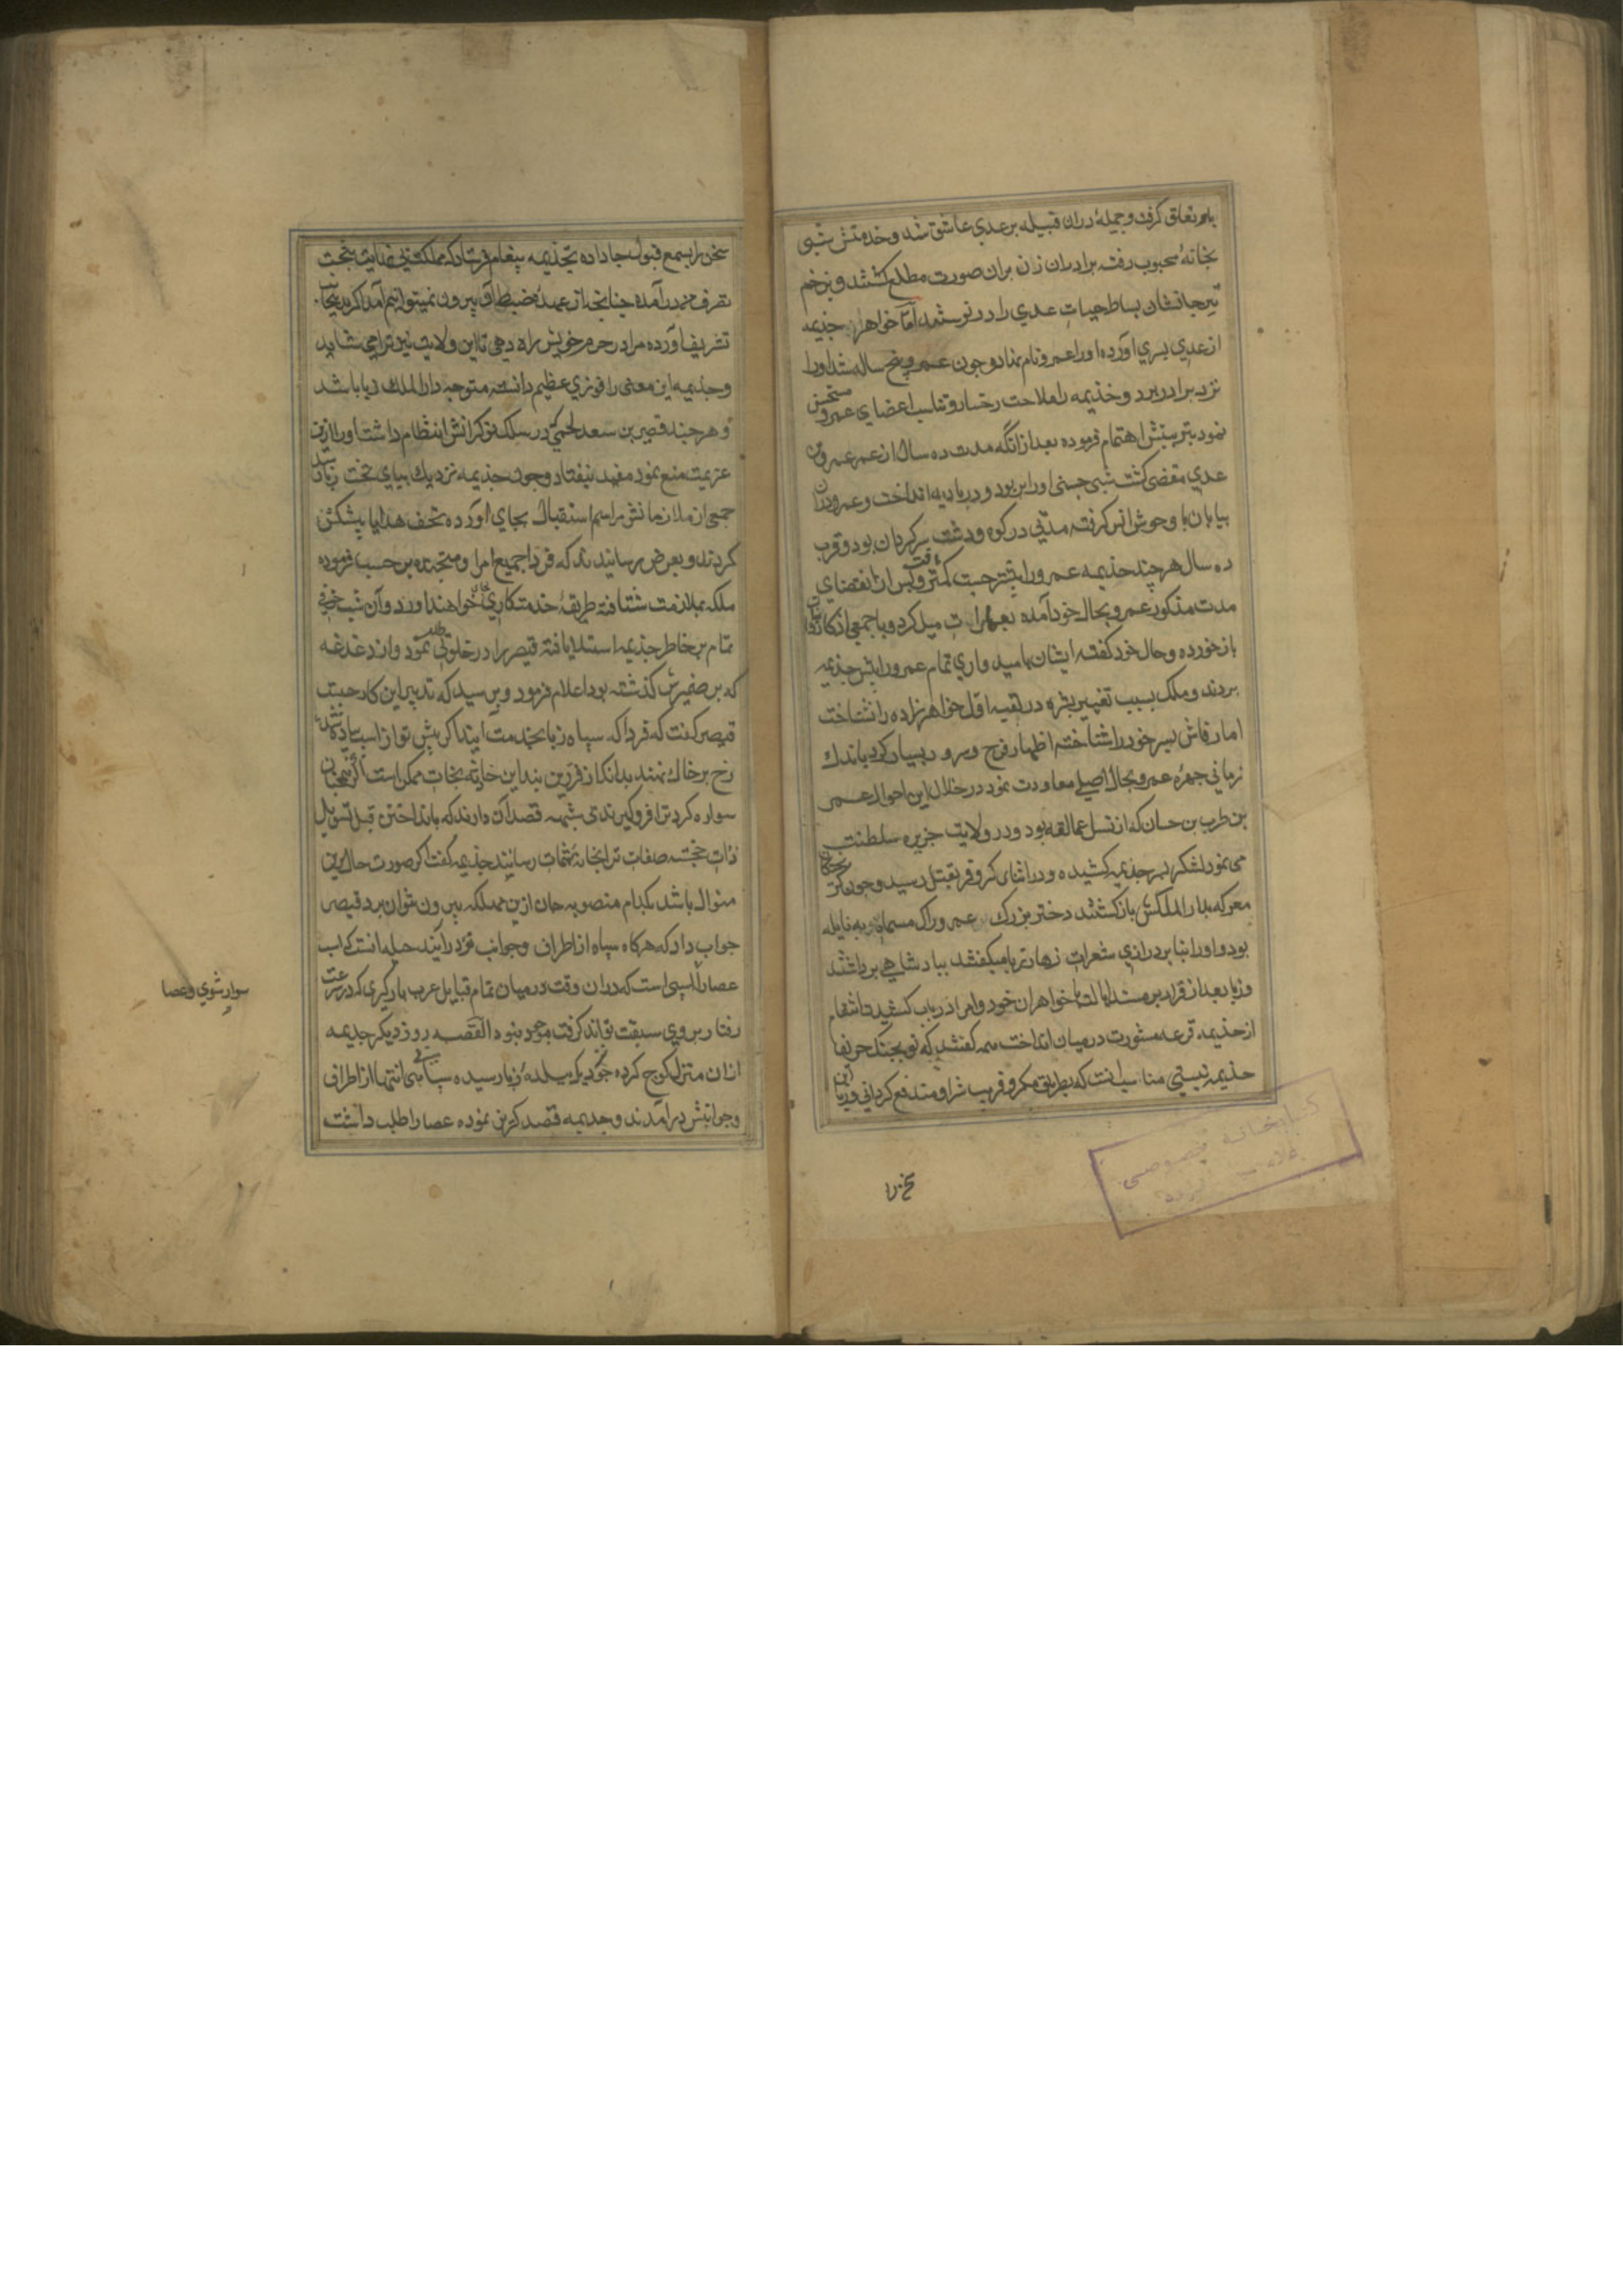 باو تعلق گرفت و جمیلهٔ دران قبیله بر عدی عاشق شد و خدمتش شبی
بخانهٔ محبوب رفته برادران زن بران صورت مطلع کشتند و بزخم
تیر جانشان بساط حیات عدی را در نوشتند اما خواهر جذیمه
از عدی پسری آورده او را عمرو نام نهاد و چون عمرو پنج ساله شد او را
نزد برادر برد و خذیمه را ملاحت رخسار و تناسب اعضای عمرو مستحسن
نمود بتربیتش اهتمام فرموده بعد از انکه مدت ده سال از عمر عمرو بن
عدی مقضی کشت شبی جنی او را بربود و در بادیه انداخت و عمرو دران
بیابان با وحوش انس کرفته مدتی در کوه و دشت سرکردان بود و قرب
ده سال هرچند جذیمه عمرو را بیشتر جست کمتر یافت و پس از انقضای
مدت مذکور عمرو بحال خود آمده بعمارات میل کرد و با جمعی از کاروانیان
باز خورده و حال خود کفته ایشان بامید واری تمام عمرو را پیش جذیمه
بردند و ملک بسبب تغییر بشره در لقیه اول خواهرزاده را نشناخت
اما رقاش پسر خود را شناخته اظهار فرح و سرور بسیار کرد باندک
زمانی چهره عمرو بحال اصلی معاودت نمود در خلال این احوال عمر
بن طرب بن حسان که از نسل عمالقه بود و در ولایت جزیره سلطنت
می نمود لشکر بسر جذیمه کشیده و در اثنای کر و فر بقتل رسید و چون
معرکه بدار الملکش باز کشتند دختر بزرک عمرو را که مسماة به نایله
بود و او را بنا بر درازی شعرات زهار زبا میکفتند بپادشاهی برداشتند
و زبا بعد از قرار بر مسند ایالت با خواهران خود و امرا در باب کشیدن انتقام
از جذیمه قرعه مشورت در میان انداخت همه کفتند که تو بجنک حریف
جذیمه نیستی مناسب انست که بطریق مکر و فریب شر او مندفع کردانی و زبا این
سخن را
سخن را بسمع قبول جا داده بجذیمه پیغام فرستاد که مملکتی بی نهایت بتحت
تصرف من در آمده چنانچه از عهدهٔ ضبط آن بیرون نمیتوانم آمد اکر بدینجانب
تشریف آورده مرا در حرم خویش راه دهی تا این ولایت نیز ترا می شاید
و جذیمه این معنی را فوزی عظیم دانسته متوجه دار الملک زبا باشد
و هرچند قصیر بن سعد لخمی که در سلک نوکرانش انتظام داشت او را ازین
عزیمت منع نمود مفید نیفتاد و چون جذیمه نزدیک بپای تخت زبا رسید
جمعی از ملازمانش مراسم استقبال بجای آورده تحف و هدایا پیشکش
کردند و بعرض رسانیدند که فردا جمیع امرا و متجنده بر حسب فرموده
ملکه بملازمت شتافته طریقهٔ خدمتکاری بجای خواهند آورد و آن شب خوفی
تمام بر خاطر جذیمه استیلا یافته قیصر را در خلوتی طلب نمود و از دغدغه
که بر ضمیرش کذشته بود اعلام فرمود و پرسید که تدبیر این کار چیست
قیصر کفت که فردا که سپاه زبا بخدمت آیند اکر پیش تو از اسب پیاده شده
رخ بر خاک نهند بدانک از فرزین بند این حادثه نجات ممکن است و اکر همچنان
سواره کرد تو فرو کیرند بی شبهه قصد آن دارند که بانداختن قبل تسویل
ذات خجسته صفات ترا بخانهٔ شهمات رسانند جذیمه کفت اکر صورت حال برین
منوال باشد بکدام منصوبه جان ازین مهلکه بیرون توان برد قیصر
جواب داد که هرکاه سپاه از اطراف و جوانب فرود آیند حیله انست که اسب
عصا را اسپی است که دران وقت در میان تمام قبایل عرب بارکیری که در سرعت
رفتار بر وی سبقت تواند کرفت موجود نبود القصه روز دیکر جذیمه
ازان منزل کوچ کرده چون نزدیک ببلدهٔ زبا رسیده سپاهی بی انتها از اطراف
و جوانبش درآمدند و جذیمه قصد کریز نموده عصا را طلب داشت
سوار شوی و عصا